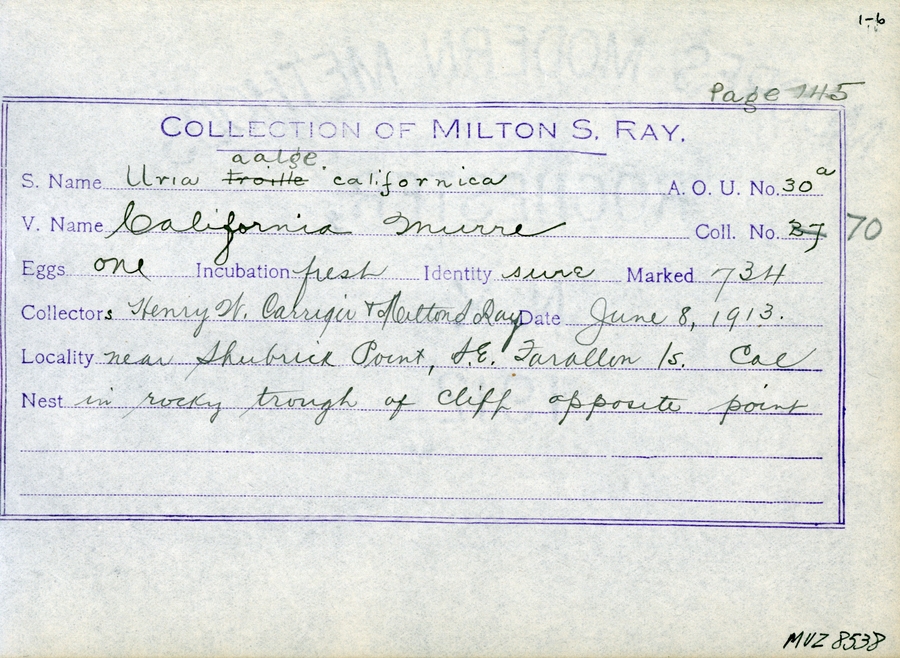 1-6
Page 145
COLLECTION OF MILTON S. RAY.
aalge.
S. Name Uria troille californica A. O. U. No. 30a
V. Name California Murre Coll. No. 27 70
Eggs one Incubation fresh Identity sure Marked 734
Collectors Henry W. Carriger & Milton S Ray Date June 8, 1913.
Locality near Shubrick Point, S.E. Farallon Is. Cal
Nest in rocky trough of cliff opposite point
MVZ 8538